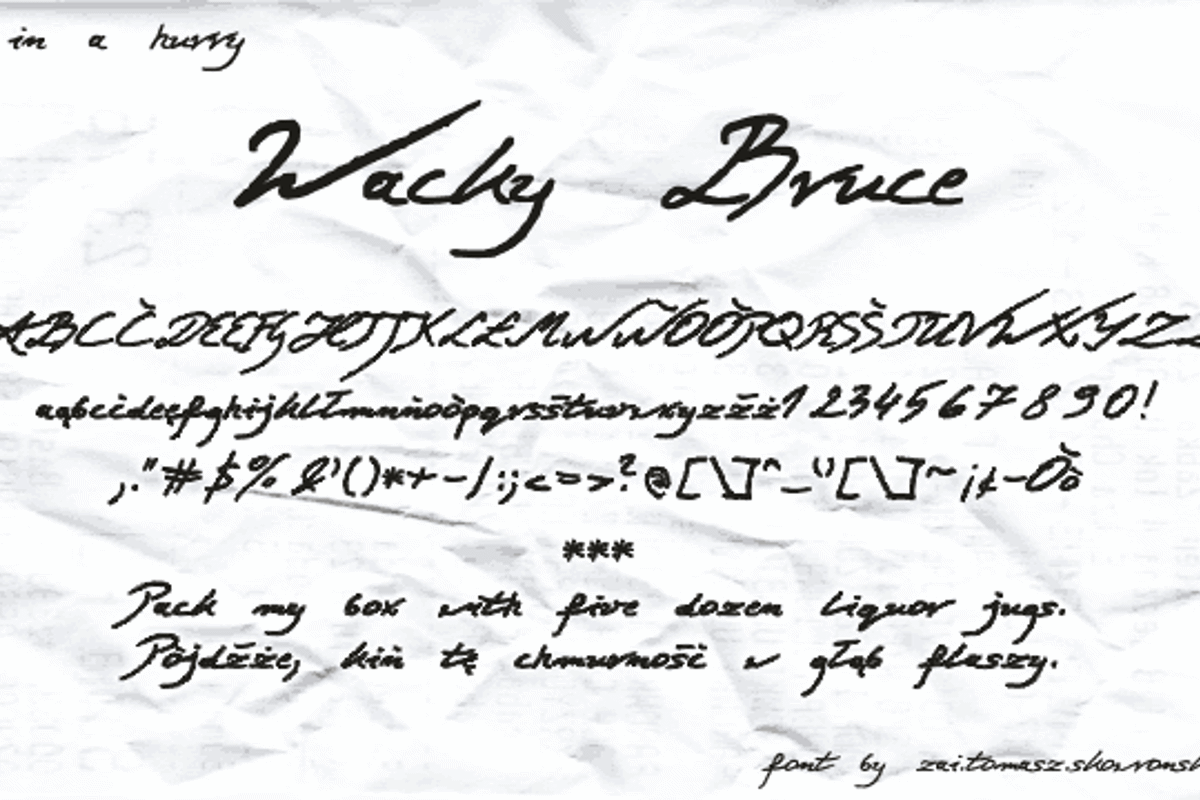 in a hurry
Wacky Bruce
ABCČDEĘFGHIJKLŁMNŇOÒPQRSŠTUVWXYZ
aąbcčdeęfghijklłmnňoòpqrsštuvwxyzžż1234567890!
,."#$%&'()*+-/:;<=>?@[\]^_"[\]~¡¢-Òò
***
Pack my box with five dozen liquor jugs.
Pòjdžże, kiň tę chmurnošč w głąb flaszy.
font by zai.tomasz.skowronsk